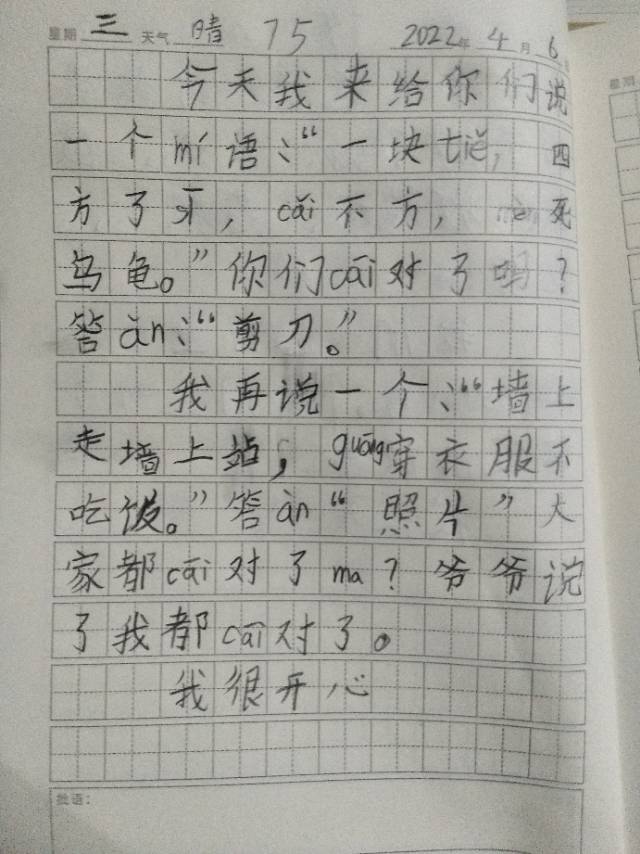 星期 三 天气 晴 75 2022年 4月 6
今天我来给你们说
一个mí语:“一块tiě,四
方了牙,cāi不方,死
乌龟。”你们cāi对了吗?
答àn:“剪刀。”
我再说一个:“墙上
走墙上站,guāng穿衣服不
吃饭。”答àn“照片”大
家都cāi对了ma?爷爷说
了我都cāi对了。
我很开心
批语:
星期